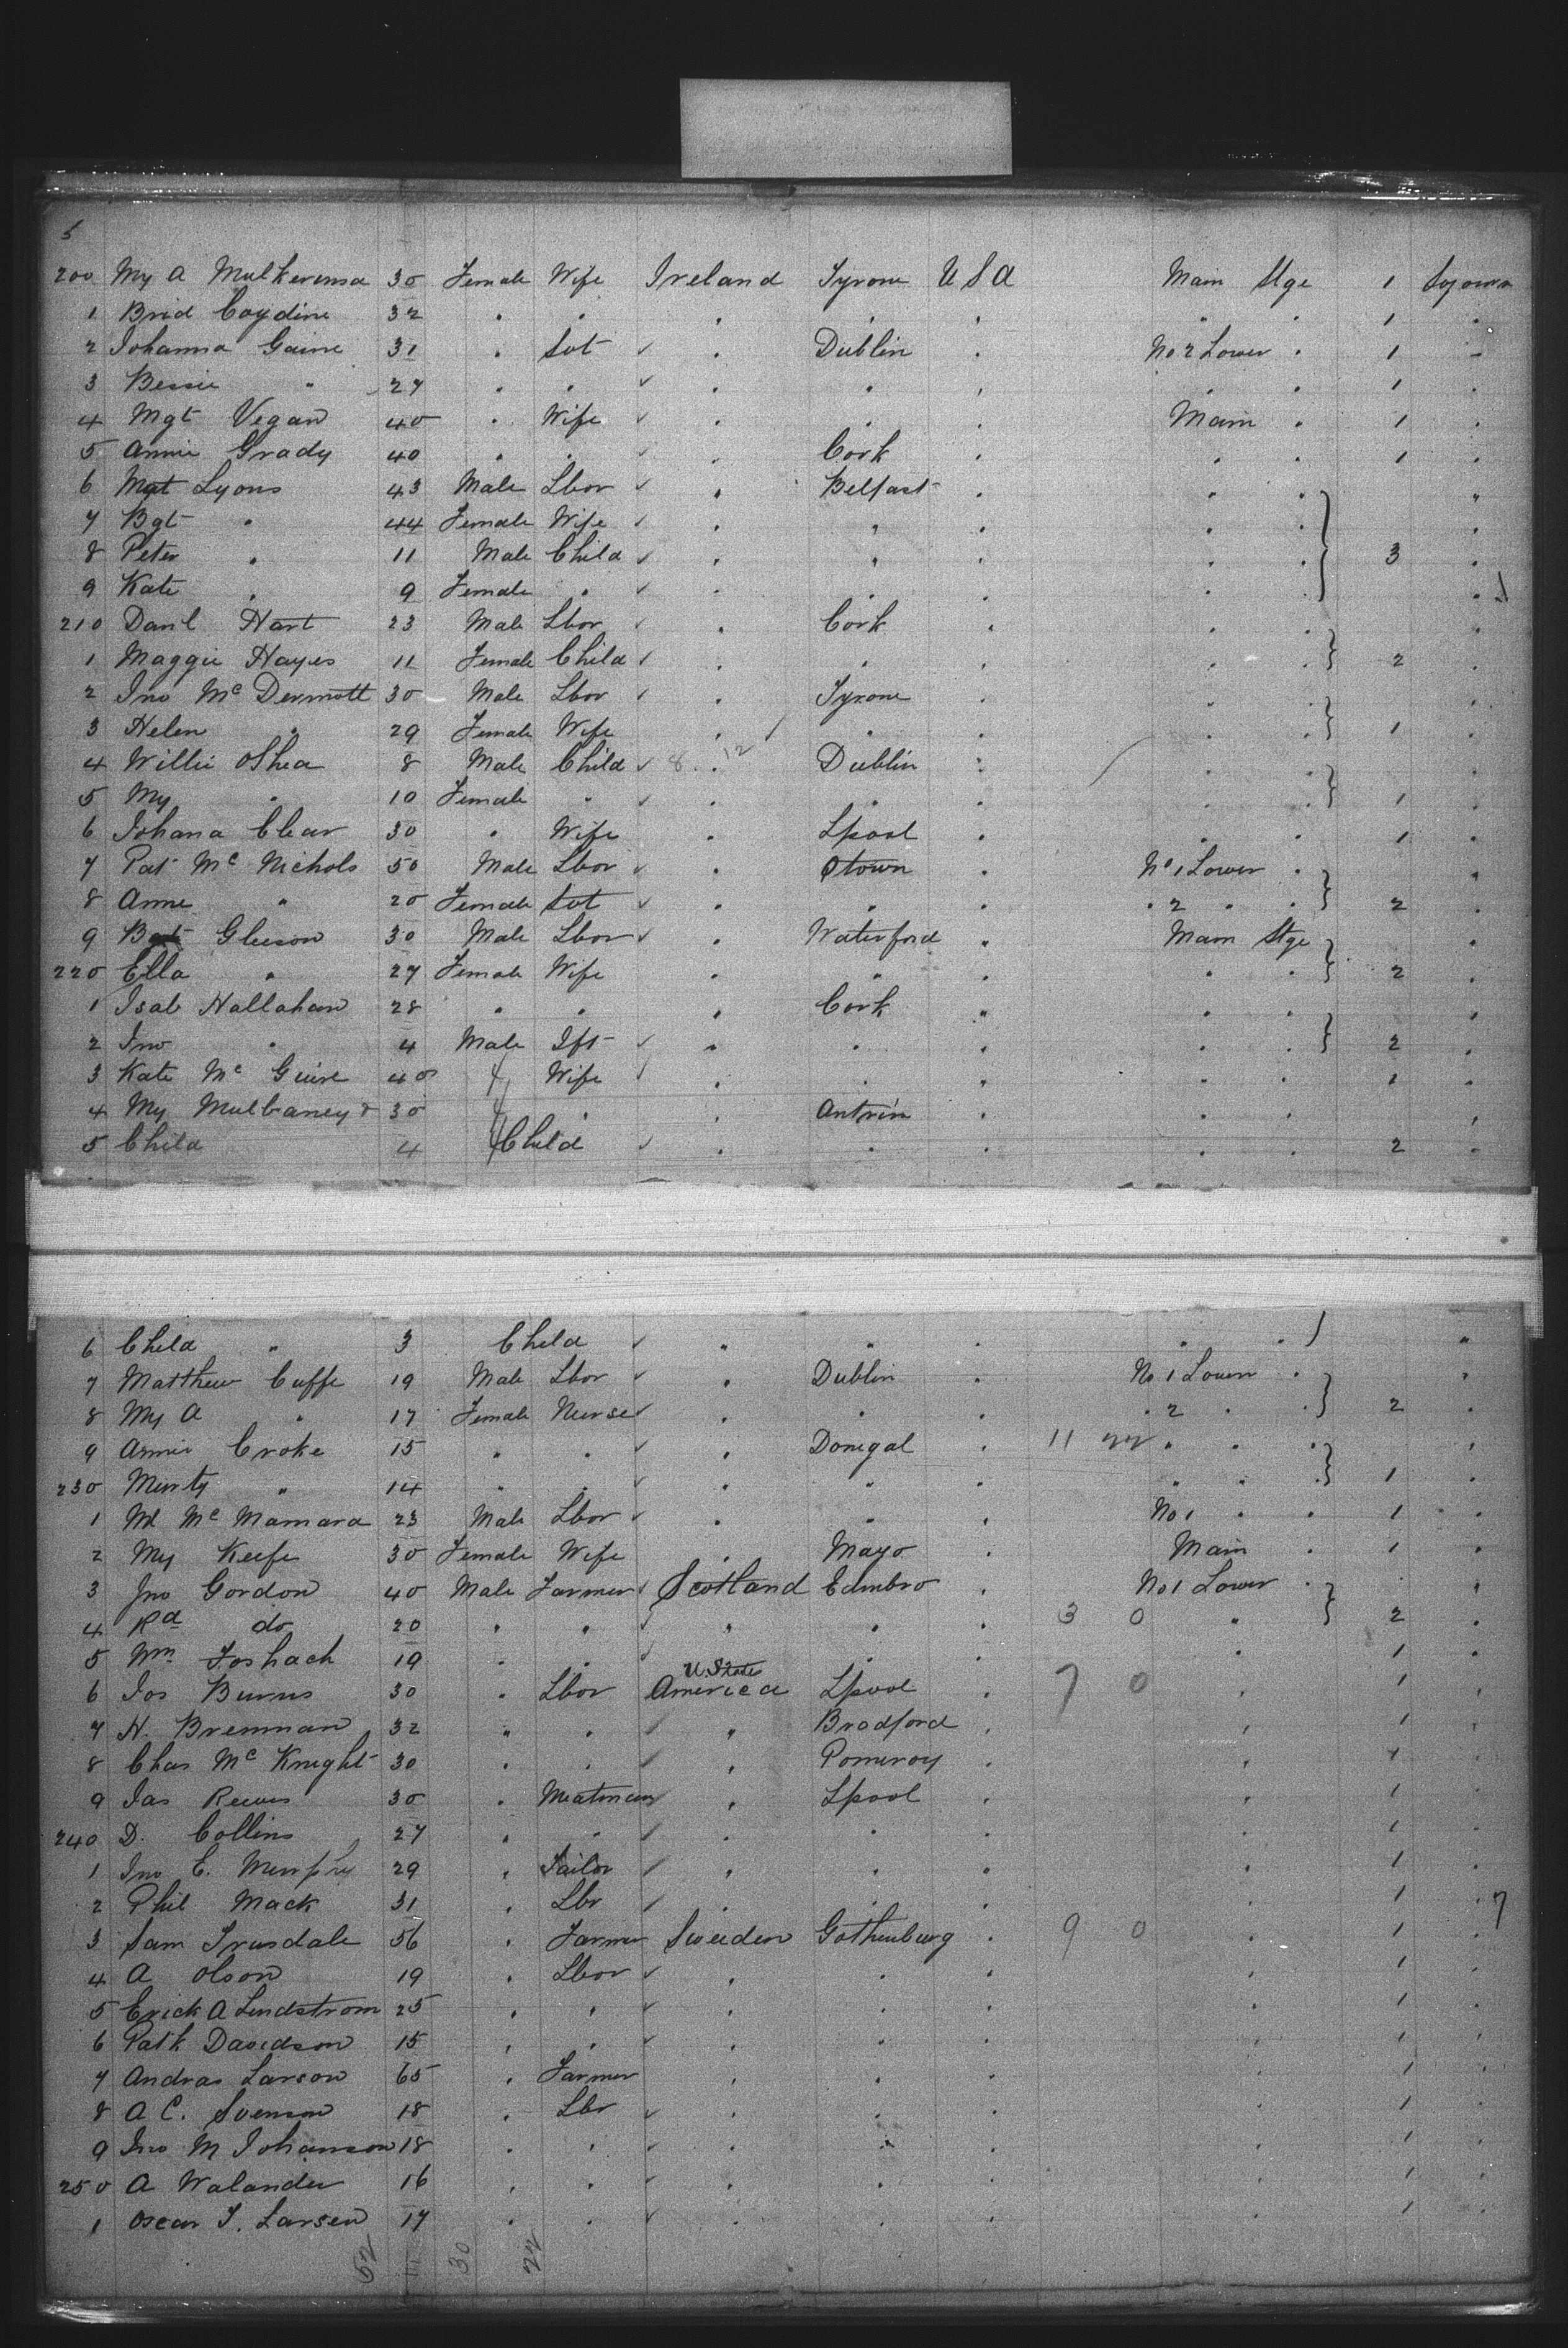 5
200 My A 30 Female Wife Ireland Tyrone U S A Main Stge 1 Sojourn
1 Brid Coydine 32 " " " " " " " 1 "
2 Johanna Gaine 31 " Svt ✓ " Dublin " No 2 Lower " 1 "
3 Bessie " 27 " " ✓ " " " " " 1 "
4 Mgt Vegan 40 " Wife ✓ " " " Main " 1 "
5 Annie Grady 40 " " ✓ " Cork " " " 1 "
6 Mgt Lyons 43 Male Lbor ✓ " Belfast " " " "
7 Bgt " 44 Female Wife ✓ " " " " " "
8 Peter " 11 Male Child ✓ " " " " " 3 "
9 Kate " 9 Female " ✓ " " " " " "
210 Danl Hart 23 Male Lbor ✓ " Cork " " " "
1 Maggie Hayes 11 Female Child ✓ " " " " " 2 "
2 Jno McDermott 30 Male Lbor ✓ " Tyrone " " " "
3 Helen " 29 Female Wife " " " " " 1 "
4 Willie OShea 8 Male Child ✓ 8 " 12 Dublin " " " "
5 My " 10 Female " ✓ " " " " " 1 "
6 Johana Clear 30 " Wife " Lpool " " " 1 "
7 Pat McNichols 50 Male Lbor ✓ " Qtown " No 1 Lower " "
8 Anne " 20 Female Svt ✓ " " " " 2 " " 2 "
9 Gleeson 30 Male Lbor ✓ " Waterford " Main Stge "
220 Ella " 27 Female Wife " " " " " 2 "
1 Isab Hallahan 28 " " " Cork " " " "
2 Jno " 4 Male Ift ✓ " " " " " 2 "
3 Kate McGuire 40 Wife ✓ " " " " " 1 "
4 My Mulbaney & 30 " " Antrim " " " "
5 Child 4 Child ✓ " " " " " 2 "
6 Child " 3 Child ✓ " " " " " "
7 Matthew Cuffe 19 Male Lbor ✓ " Dublin " No 1 Lower " "
8 My A " 17 Female Nurse ✓ " " " " 2 " " 2 "
9 Annie Croke 15 " " ✓ " Donegal " 11 22 " " " "
230 Murty " 14 " " ✓ " " " " " " 1 "
1 Ml McMamara 23 Male Lbor ✓ " " " No 1 " " 1 "
2 My Keefe 30 Female Wife " Mayo " Main " 1 "
3 Jno Gordon 40 Male Farmer ✓ Scotland Edinbro " No 1 Lower " "
4 Rd do 20 " " ✓ " " " 3 0 " 2 "
5 Wm Foshach 19 " " ✓ " " " " 1 "
U. State
6 Jos Burns 30 " Lbor America Lpool " 7 0 " 1 "
7 H. Brennan 32 " " ✓ " Bradford " " 1 "
8 Chas McKnight 30 " " ✓ " Pomeroy " " 1 "
9 Jas Reeves 30 " Meatman ✓ " Lpool " " 1 "
240 D. Collins 27 " " ✓ " " " " 1 "
1 Jno E. Murphy 29 " Sailor ✓ " " " " 1 "
2 Phil Mack 31 " Lbr ✓ " " " " 1 " 7
3 Sam Trusdale 56 " Farmer Sweden Gothenburg " 9 0 " 1 "
4 A Olson 19 " Lbor ✓ " " " " 1 "
5 Erick A Lindstrom 25 " " ✓ " " " " 1 "
6 Patk Davidson 15 " " ✓ " " " " 1 "
7 Andras Larson 65 " Farmer " " " " 1 "
8 A C. Svenson 18 " Lbr ✓ " " " " 1 "
9 Jno M Johanson 18 " " ✓ " " " " 1 "
250 A Walander 16 " " ✓ " " " " 1 "
1 Oscar T. Larsen 17 " " ✓ " " " " 1 "
52 30 22